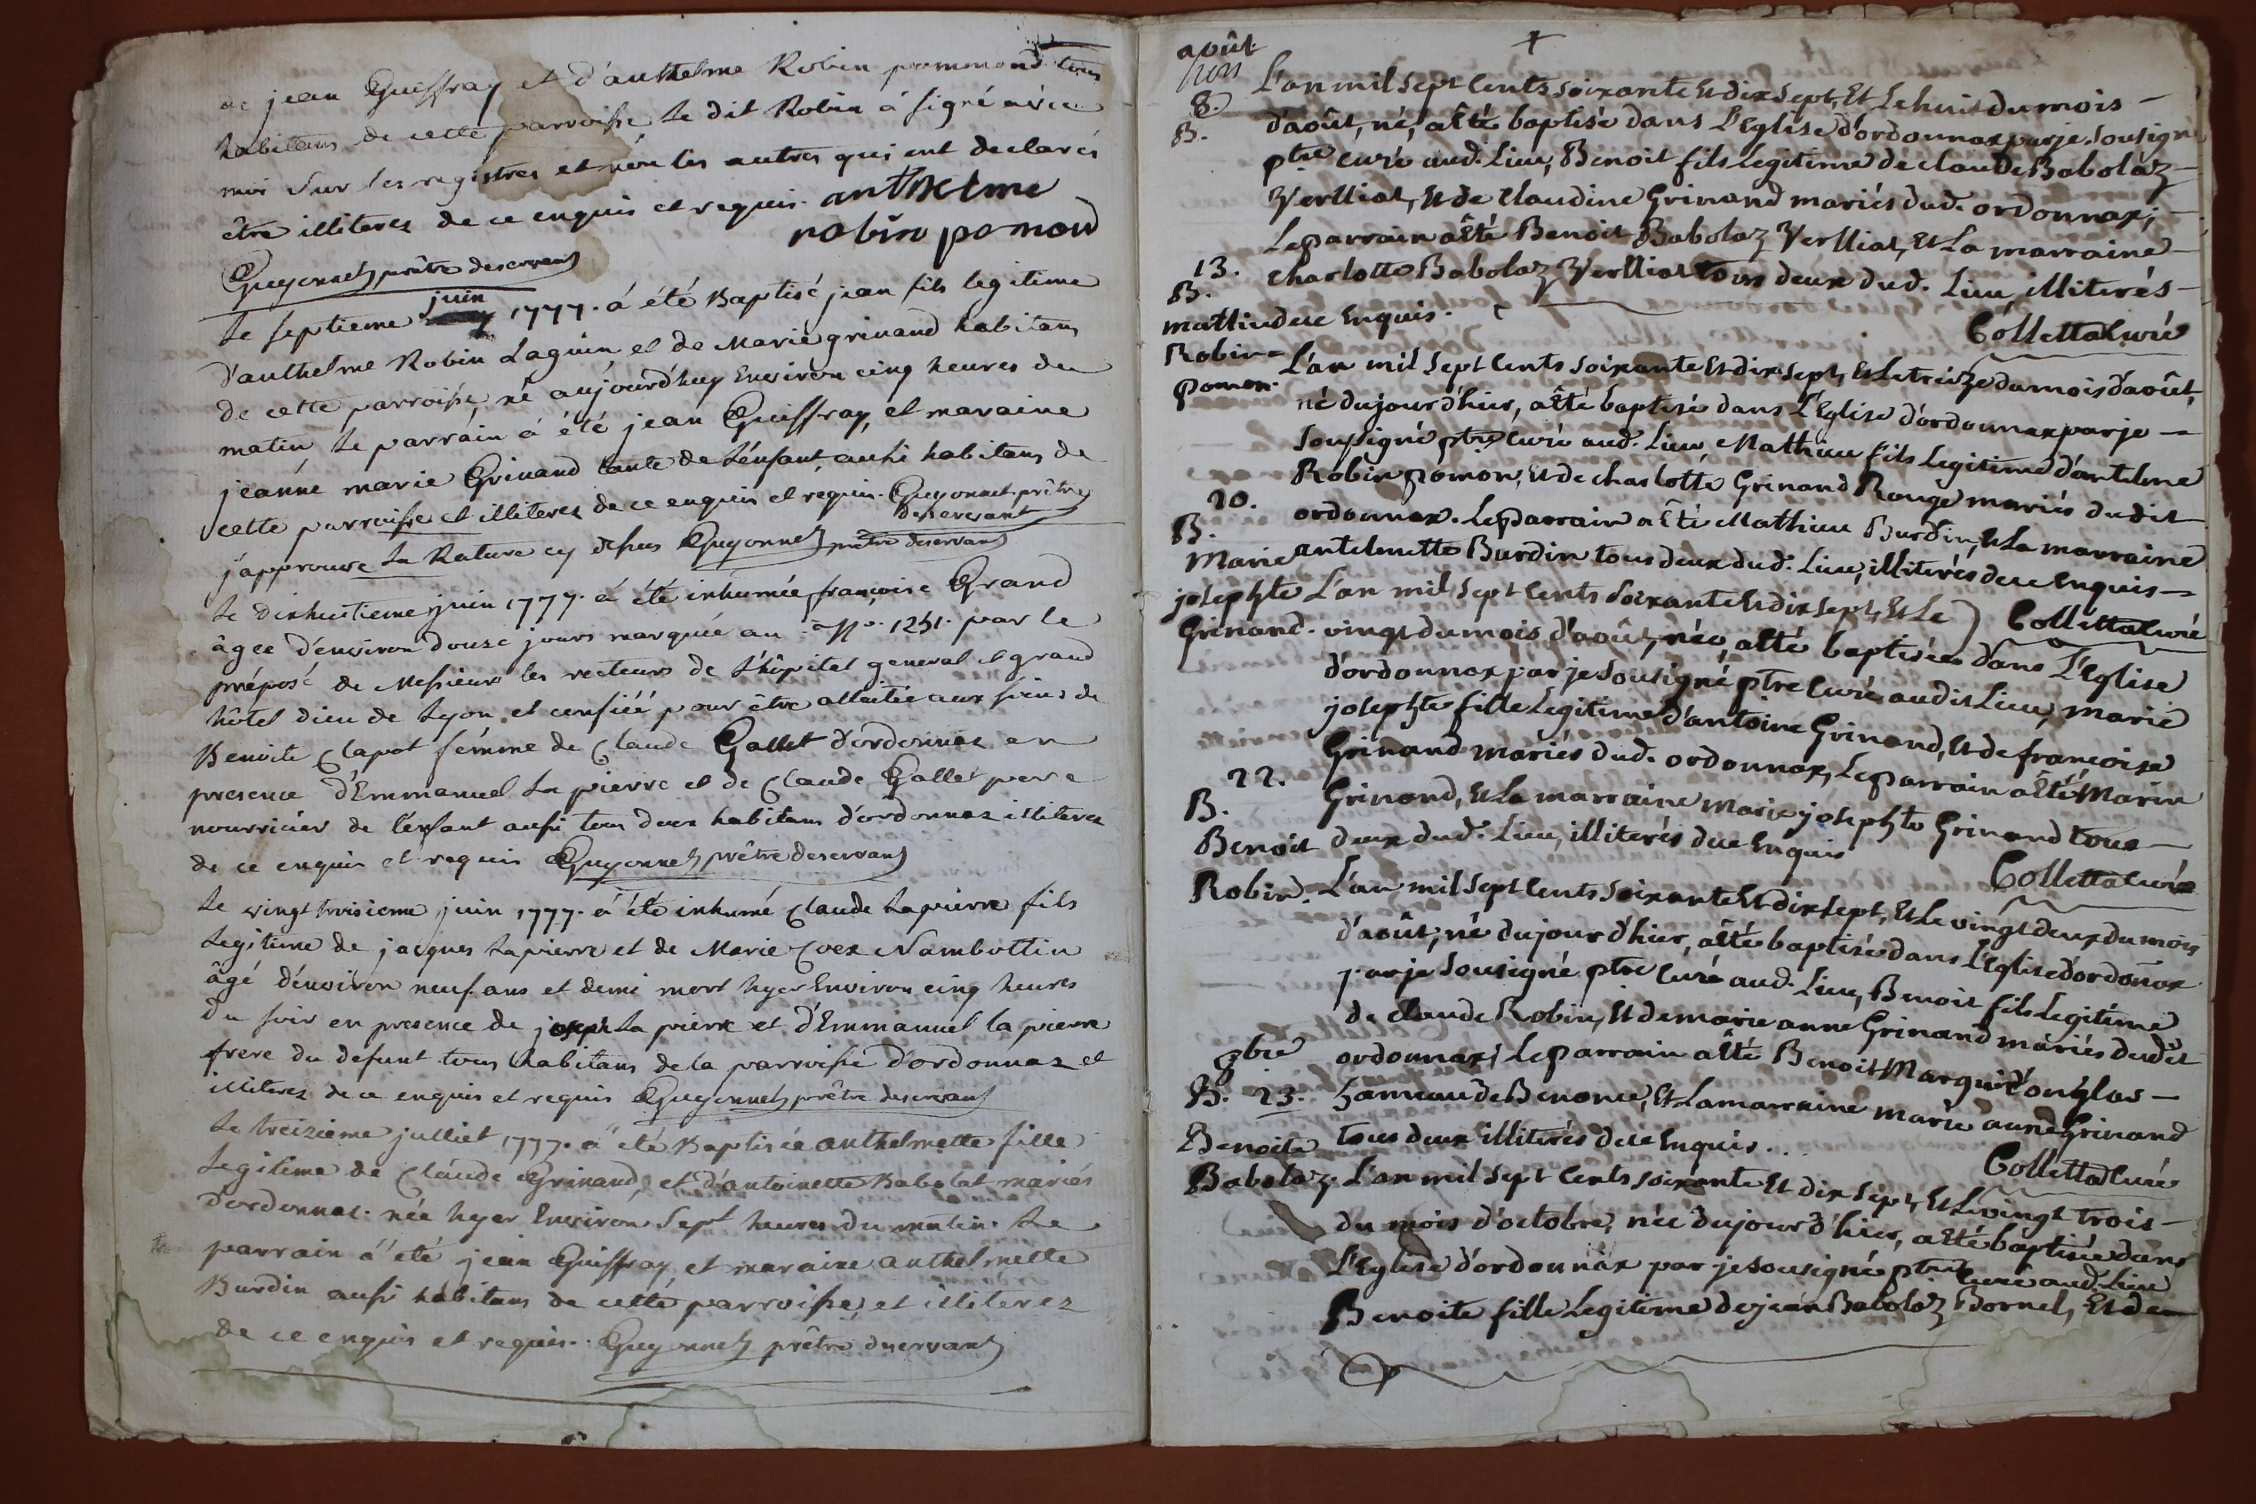 de jean Guiffray et d'anthelme Robin pommond tous
habitans de cette parroisse le dit Robin á signé avec
moi sur les registres et non les autres qui ont declarés
être illiteres de ce enquis et requis. anthelme
robin pomond
Guyonnet prêtre deservant
juin
Le septieme 1777. á été Baptisé jean fils legitime
d'anthelme Robin Laguin et de Marie grinand habitans
de cette parroisse, né aujourd'huy Environ cinq heures du
matin le parrain á été jean Guiffray, et maraine
jeanne marie Grinand tante de l'enfant, aussi habitans de
cette parroisse et illiteres de ce enquis et requis. Guyonnet prêtre
deservant
j'approuve la Rature cy dessus Guyonnet prêtre deservant
Le dixhuitieme juin 1777. á été inhumée françoise Grand
âgée d'environ douse jours marquée au N.º 1251. par le
préposé de Messieurs les recteurs de l'hôpital general et grand
hôtel dieu de Lyon et confiéé pour être allaitée aux soins de
Benoite Clapot fémme de Claude Gallet d'ordonnas en
presence d'Emmanuel La pierre et de Claude Gallet pere
nourricier de l'enfant aussi tous deux habitans d'ordonnas illiteres
de ce enquis et requis Guyonnet prêtre deservant
Le vingt troisieme juin 1777. á été inhumé Claude Lapierre fils
Legitime de jacques Lapierre et de Marie Coex Nambottin
âgé d'environ neuf ans et demi mort hyer Environ cinq heures
du soir en presence de joseph La pierre et d'Emmanuel la pierre
frere du defunt tous habitans de la parroisse d'ordonnas et
illiteres de ce enquis et requis Guyonnet prêtre deservant
Le treizieme julliet 1777. á été Baptisée anthelmette fille
Legitime de Claude Grinand, et d'antoinette Babolat mariés
d'ordonnas. née hyer Environ Sept heures du matin. Le
parrain á été jean Guiffray et maraine anthelmette
Burdin aussi habitans de cette parroisse, et illiteres
de ce enquis et requis. Guyonnet prêtre deservant
août
8.
B.
L'an mil sept Cents soixante Et dix sept, Et Le huit du mois
d'août, né, a été baptisé dans L'Eglise d'ordonnax par je Sousigné
ptre Curé aud. Lieu, Benoit fils Legitime de claude Babolaz
Verlliat, Et de Claudine Grinand mariés dud. ordonnax;
Le parrain a été Benoit Babolaz Verlliat, Et La marraine
Charlotte Babolaz Verlliat tous deux dud. Lieu, illiterés
de ce Enquis.
Colletta Curé
13.
B.
mathieu
Robin
pomon.
L'an mil sept Cents soixante Et dix sept, Et Le treize du mois d'août,
né du jour d'hier, a été baptisé dans L'Eglise d'ordonnax par je
Sousigné ptre Curé aud. Lieu, Mathieu fils Legitime d'antelme
Robin pomon, Et de charlotte Grinand Rouge mariés dudit
ordonnax. Le parrain a été Mathieu Burdin, Et La marraine
antelmette Burdin tous deux dud. Lieu, illiterés de ce Enquis
Colletta Curé
20.
B.
Marie
josephte
Grinand.
L'an mil sept Cents soixante Et dix sept, Et Le
vingt du mois d'août, née, a été baptisée dans L'Eglise
d'ordonnax par je Sousigné ptre Curé audit Lieu, marie
josephte fille Legitime d'antoine Grinand, Et de françoise
Grinand mariés dud. ordonnax, Le parrain a été Marin
Grinand, Et La marraine marie josephte Grinand tous
deux dud. Lieu, illiterés de ce Enquis
Colletta Curé
22.
B.
Benoit
Robin.
L'an mil sept Cents soixante Et dix sept, Et Le vingt deux du mois
d'août, né du jour d'hier, a été baptisé dans L'Eglise d'ordonax
par je Sousigné ptre Curé aud. Lieu, Benoit fils Legitime
de claude Robin, Et de marie anne Grinand mariés dudit
ordonnax; Le parrain a été Benoit Marquis d'onglas
hameau de Benonce, Et La marraine marie anne Grinand
tous deux illiterés de ce Enquis...
Colletta Curé
8bre
B. 23.
Benoite
Babolaz.
L'an mil sept Cents soixante Et dix sept, Et Le vingt trois
du mois d'octobre, née du jour d'hier, a été baptisée dans
L'Eglise d'ordonnax par je Sousigné ptre Curé aud. Lieu
Benoite fille Legitime de jean Babolaz Bornel, Et de